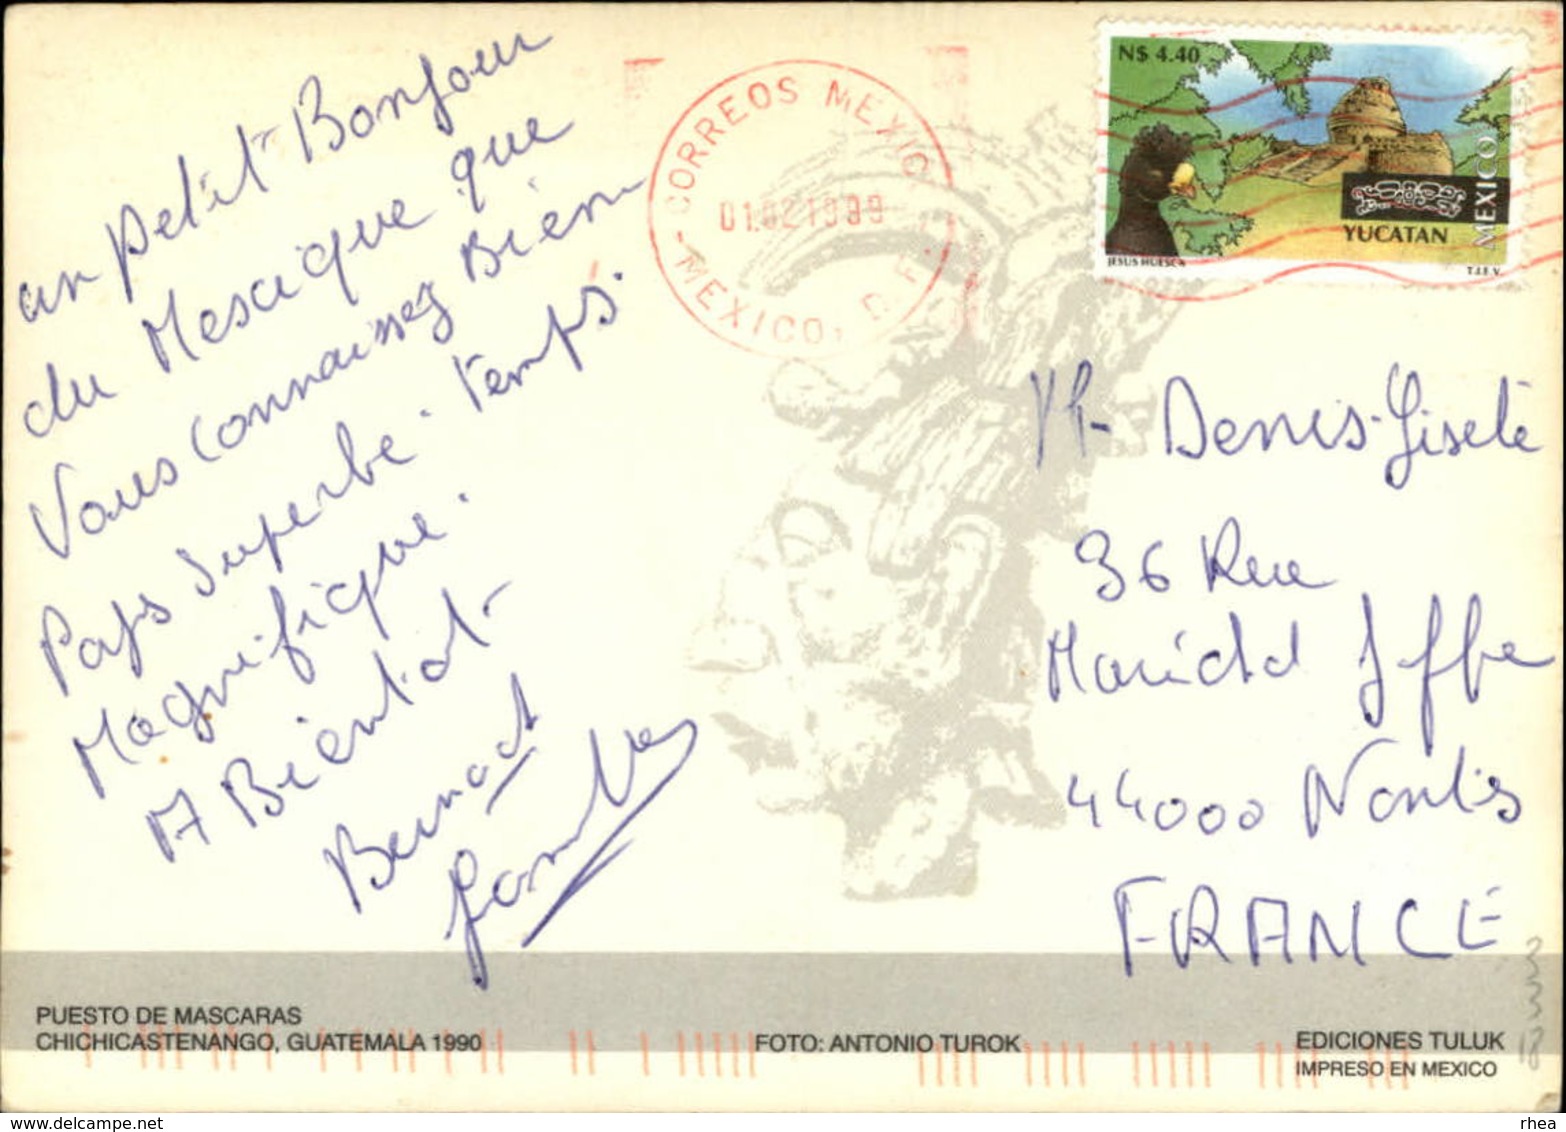 un petit Bonjour
du Mescique que
Vous connaissez Bien
Pays Superbe. Temps.
Magnifique.
A Bientot-
CORREOS MEXICO
01.02 1999
MEXICO, D.F.
N$ 4.40
YUCATAN
MEXICO
JESUS HUESCA
T.I.E.V.
Denis-Gisele
36 Rue
Marichal Joffre
44000 Nantes
FRANCE
PUESTO DE MASCARAS
CHICHICASTENANGO, GUATEMALA 1990
FOTO: ANTONIO TUROK
EDICIONES TULUK
IMPRESO EN MEXICO
www.delcampe.net
rhea